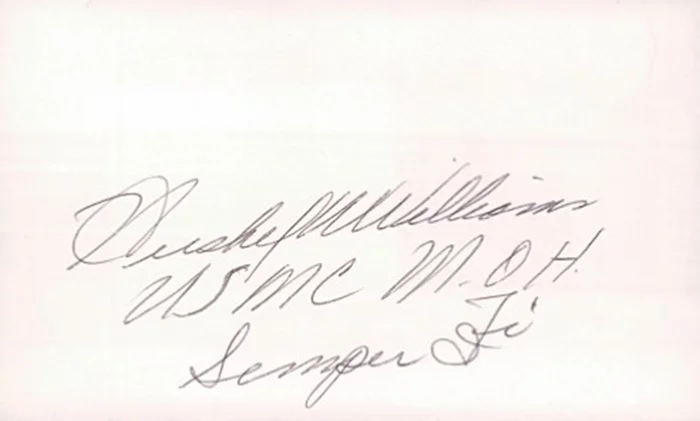 Hershel W Williams
USMC M.O.H.
Semper Fi